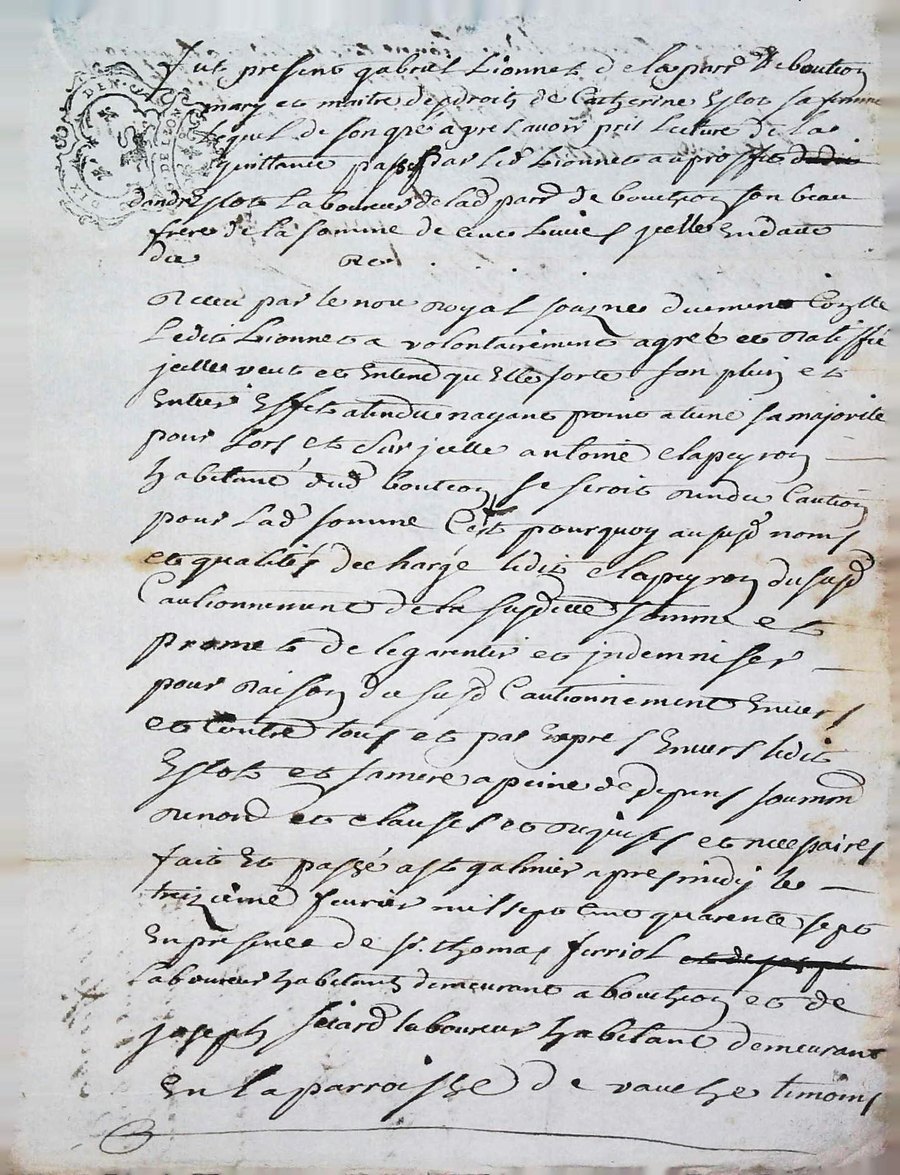 fut present gabriel Lionnet de la parr de boutheon
mary et maitre des droits de Catherine Eslot sa femme
Lequel de son gré apres avoir pris Lecture de la
quittance passé par Led Lionnet au proffit
dandré Eslot Laboureur de lad parr de boutheon son beau
frere de la somme de cinc Livres jcelle En datte
du
Receu par le not Royal soubsigné duement
Ledit Lionnet a volontairement agréé et Ratiffié
jcelle veut et Entend quElle sorte son plein et
Entier Effet atendu nayant point ateint sa majorité
pour Lors et Sur jcelle antoine clapeyron
habitant dud boutheon se seroit rendu Caution
pour Lad somme C'est pourquoy au susd noms
et qualités decharge ledit clapeyron du susd
Cautionnement de la susditte somme et
promet de le garentir et jndemniser
pour Raison du susd Cautionnement Envers
et Contre tous et par Expres Envers ledit
Eslot et sa mere a peine de depens soumon
Renond et clauses et Requises et necessaires
fait Et passé a st galmier apres midy le
treizieme fevrier mil sept cent quarente sept
En presence de sr. thomas ferriol
laboureur habitant demeurant a boutheon et de
joseph sicard laboureur habitant demeurant
En la parroisse de vauche temoins